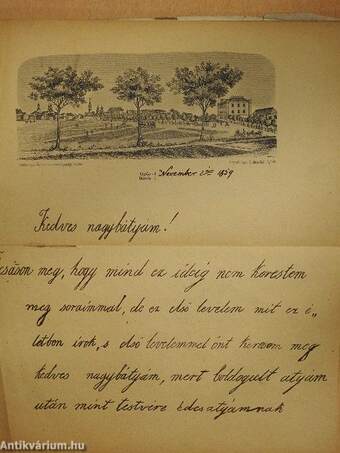 November 27ᵉⁿ 1859
Kedves nagybátyám!
csáson meg, hogy mind ez ideig nem kerestem
meg soraimmal, de ez első levelem mit ez é„
letbon irok, s első levelemmel önt keresem meg
kedves nagybátyám, mert boldogult atyám
után mint testvére édesatyámnak
Antikvárium.hu